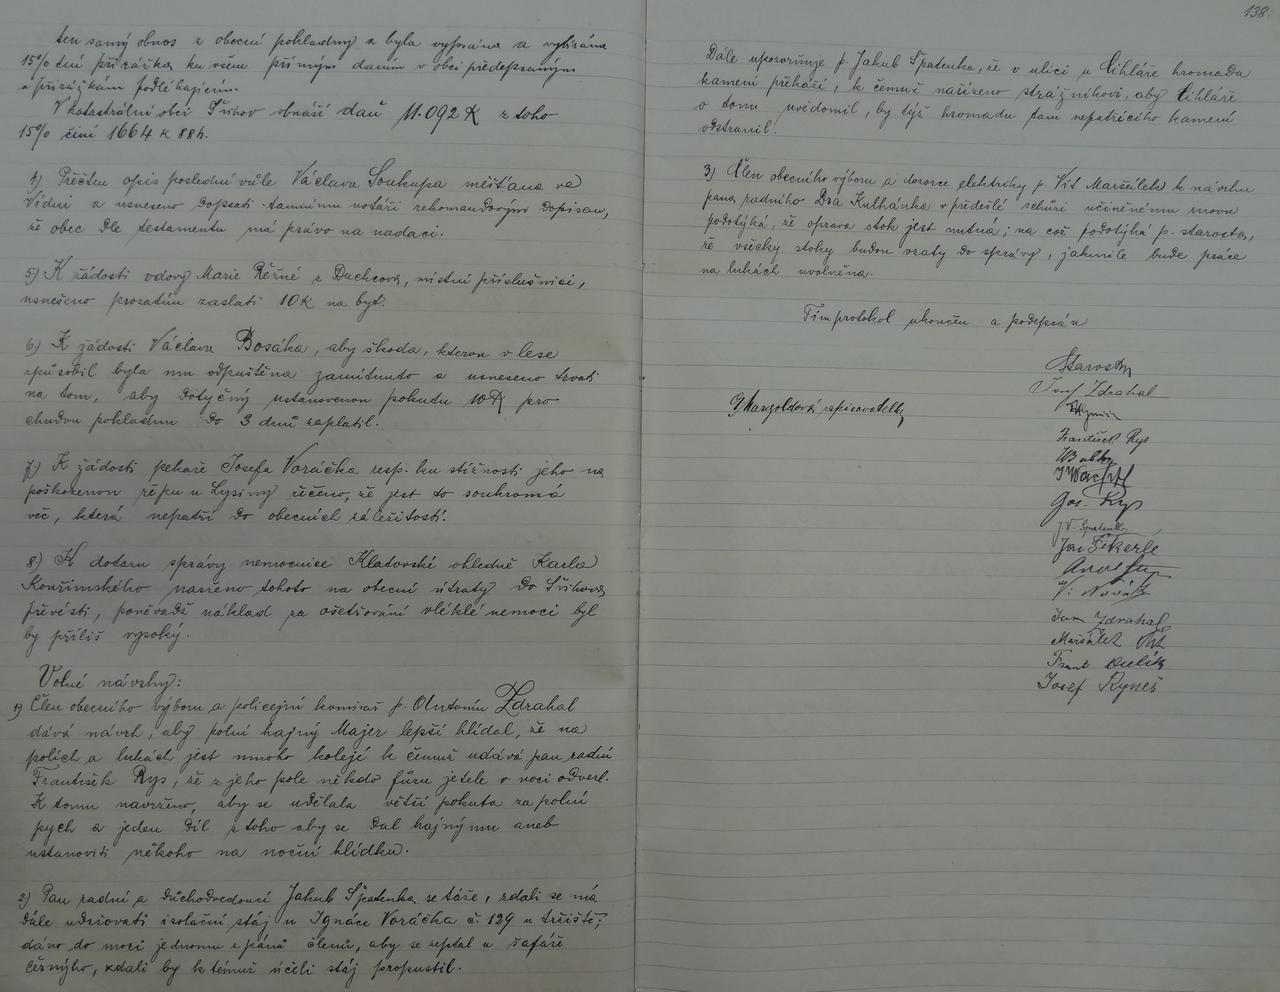 ten samý obnos z obecní pokladny a byla vypsána a vybírána
15% tní přirážka ku všem přímým daním v obci předepsaným
a přirážkám podléhajícím.
V katastrální obci Švihov obnáší daň 11.092 K z toho
15% činí 1664 K 88 h.
4) Přečten opis poslední vůle Václava Soukupa měšťana ve
Vídni a usneseno dopsati tamnímu notáři rekomandovým dopisem,
že obec dle testamentu má právo na nadaci.
5) K žádosti vdovy Marie Řezné z Duchcova, místní příslušnici,
usnešeno prozatím zaslati 10 K na byt.
6) K žádosti Václava Bosáka, aby škoda, kterou v lese
způsobil byla mu odpuštěna zamítnuto a usneseno trvati
na tom, aby dotyčný ustanovenou pokutu 10 K pro
chudou pokladnu do 3 dnů zaplatil.
7) K žádosti pekaře Josefa Voráčka resp. ku stížnosti jeho na
poškozenou řepu u Lysiny řečeno, že jest to soukromá
věc, která nepatří do obecních záležitostí.
8) K dotazu správy nemocnice Klatovské ohledně Karla
Kouřimského nařízeno tohoto na obecní útraty do Švihova
převésti, poněvadž náklad za ošetřování vleklé nemoci byl
by příliš vysoký.
Volné návrhy:
1) Člen obecního výboru a policejní komisař p. Antonín Zdrahal
dává návrh, aby polní hajný Majer lepší hlídal, že na
polích a lukách jest mnoho kolejí k čemuž udává pan radní
František Rys, že z jeho pole někdo fůru jetele v noci odvezl.
K tomu navrženo, aby se udělala větší pokuta za polní
pych a jeden díl z toho aby se dal hajnýmu aneb
ustanoviti někoho na noční hlídku.
2) Pan radní a důchodvedoucí Jakub Špatenka se táže, zdali se má
dále udržovati isolační stáj u Ignáce Voráčka č. 129 u tržiště;
dáno do moci jednomu z pánů členů, aby se zeptal u šafáře
Černýho, zdali by k témuž účeli stáj propustil.
138.
Dále upozorňuje p. Jakub Špatenka, že v ulici u Cihláře hromada
kamení překáží, k čemuž nařízeno strážníkovi, aby Cihláře
o tomu uvědomil, by týž hromadu tam nepatřícího kamení
odstranil.
3) Člen obecního výboru a dozorce elektriky p. Vít Maršálek k návrhu
pana radního Dra Kulhánka v předešlé schůzi učiněnému znovu
podotýká, že oprava stok jest nutná; na což podotýká p. starosta,
že všecky stoky budou vzaty do správy, jakmile bude práce
na lukách uvolněna.
Tím protokol ukončen a podepsán
Starosta
Josef Zdrahal
J. Mangoldová zapisovatelka
František Rys
J Wachtl
Jos. Rys
J. V. Špatenka
Jan Šikerle
V. Novák
Jan Zdrahal
Maršálek Vít
Josef Ryneš